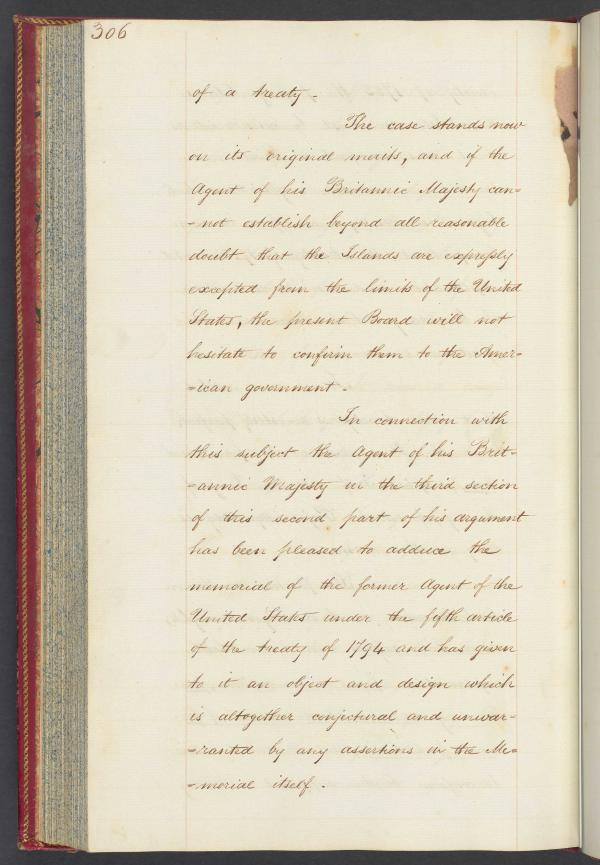 306
of a treaty.
The case stands now
on its original merits, and if the
Agent of his Britannic Majesty can=
=not establish beyond all reasonable
doubt that the Islands are expressly
excepted from the limits of the United
States, the present Board will not
hesitate to confirm them to the Amer=
=ican government.
In connection with
this subject the Agent of his Brit=
=annic Majesty in the third section
of this second part of his argument
has been pleased to adduce the
memorial of the former Agent of the
United States under the fifth article
of the treaty of 1794 and has given
to it an object and design which
is altogether conjectural and unwar=
=ranted by any assertions in the Me=
=morial itself.